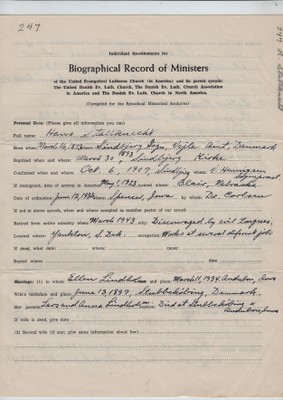 247
Individual Questionnaire for
Biographical Record of Ministers
of the United Evangelical Lutheran Church (in America) and its parent synods:
The United Danish Ev. Luth. Church, The Danish Ev. Luth. Church Association
in America and The Danish Ev. Luth. Church in North America.
(Compiled for the Synodical Historical Archives)
Personal Data: (Please give all information)
Full name: Hans Stallknecht
Born when March 16, 1893 where Sindbjerg Sogn, Vejle Amt, Denmark
Baptized when and where: March 30, 1893, Sindbjerg Kirke
Confirmed when and where Oct. 6, 1907, Sindbjerg
If immigrated, date of arrival in America May 1, 1923 where Blair, Nebraska
Date of ordination: June 12, 1932 where Spencer, Iowa by whom: Dr. Carlsen
If not in above synods, when and where accepted as member pastor of our synod:
Retired (from active ministry) when March 1943 why: Discouraged by evil tongues,
Located where: Yankton, S. Dak. occupation: Works at several different jobs
If dead, what date: where: cause:
Buried where: date
Marriage: (1) to whom Ellen Lindholm and place March 11, 1934, Audubon, Iowa
Wife's birthdate and place: June 13, 1899, Stubbekøbing, Denmark
Her parents: Lars and Anna Lindholm Died at Stubbekøbing & Audubon, Iowa
If wife is dead, give date
(2) Second wife (if any give same information about her)